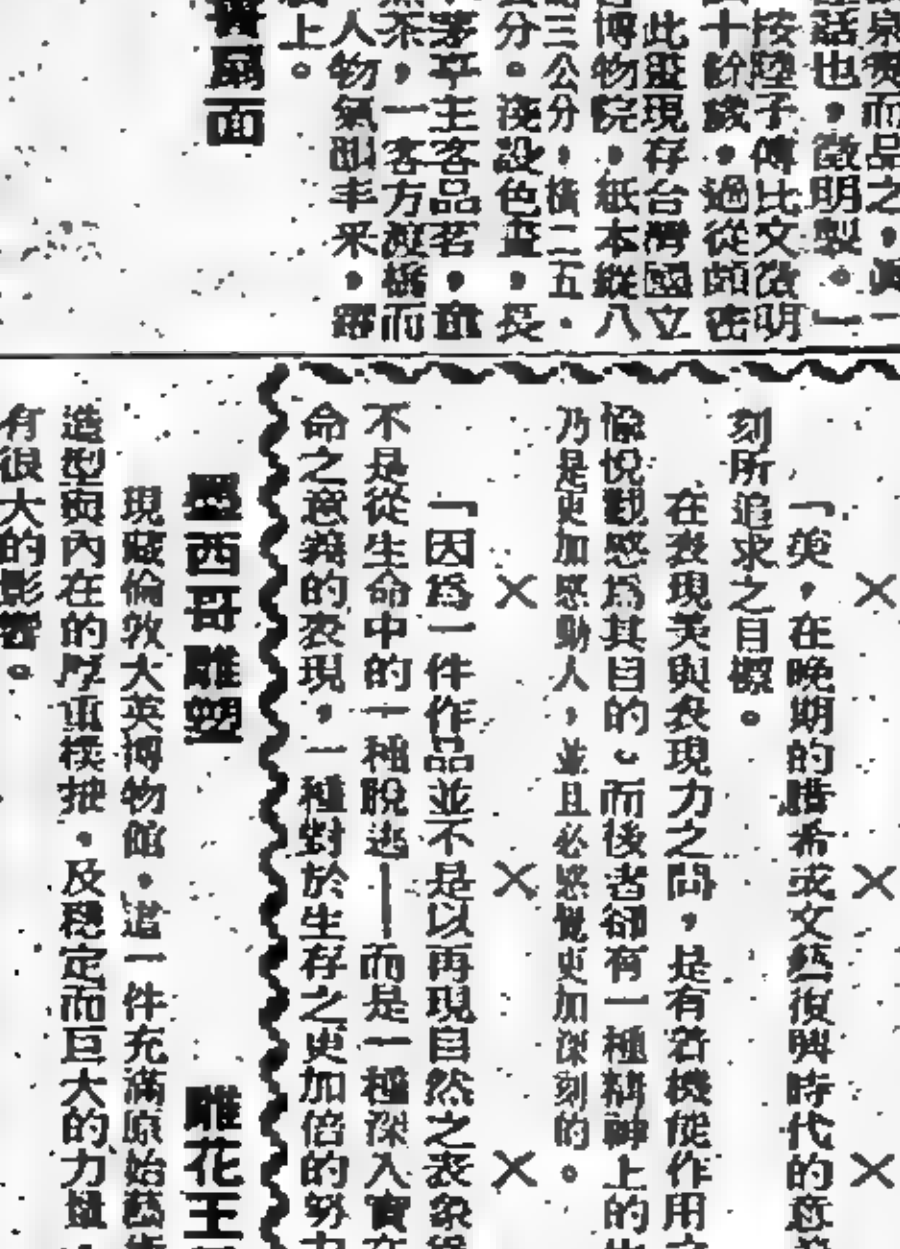 泉煑而品之，眞一
話也，徵明製。」
按陸子傅比文徵明
十餘歲，過從頗密
此畫現存台灣國立
博物院，紙本縱八
三公分，橫二五．
分。淺設色畫，長
茅亭主客品茗，
茶，一客方渡橋而
人物氣韻丰釆，
上。
扇面
「美，在晚期的臘希或文藝復興時代的意
刻所追求之目標。
在表現美與表現力之間，是有著機能作用
愉悅動感為其目的。而後者卻有一種精神上的
乃是更加感動人，並且必感覺更加深刻的。
×　×　×
「因為一件作品並不是以再現自然之表象
不是從生命中的一種脫逃——而是一種深入實在
命之意義的表現，一種對於生存之更加倍的努力
墨西哥雕塑
現藏倫敦大英博物館。這一件充滿原始藝術
造型與內在的厚重樸拙，及穩定而巨大的力量
有很大的影響。
雕花王